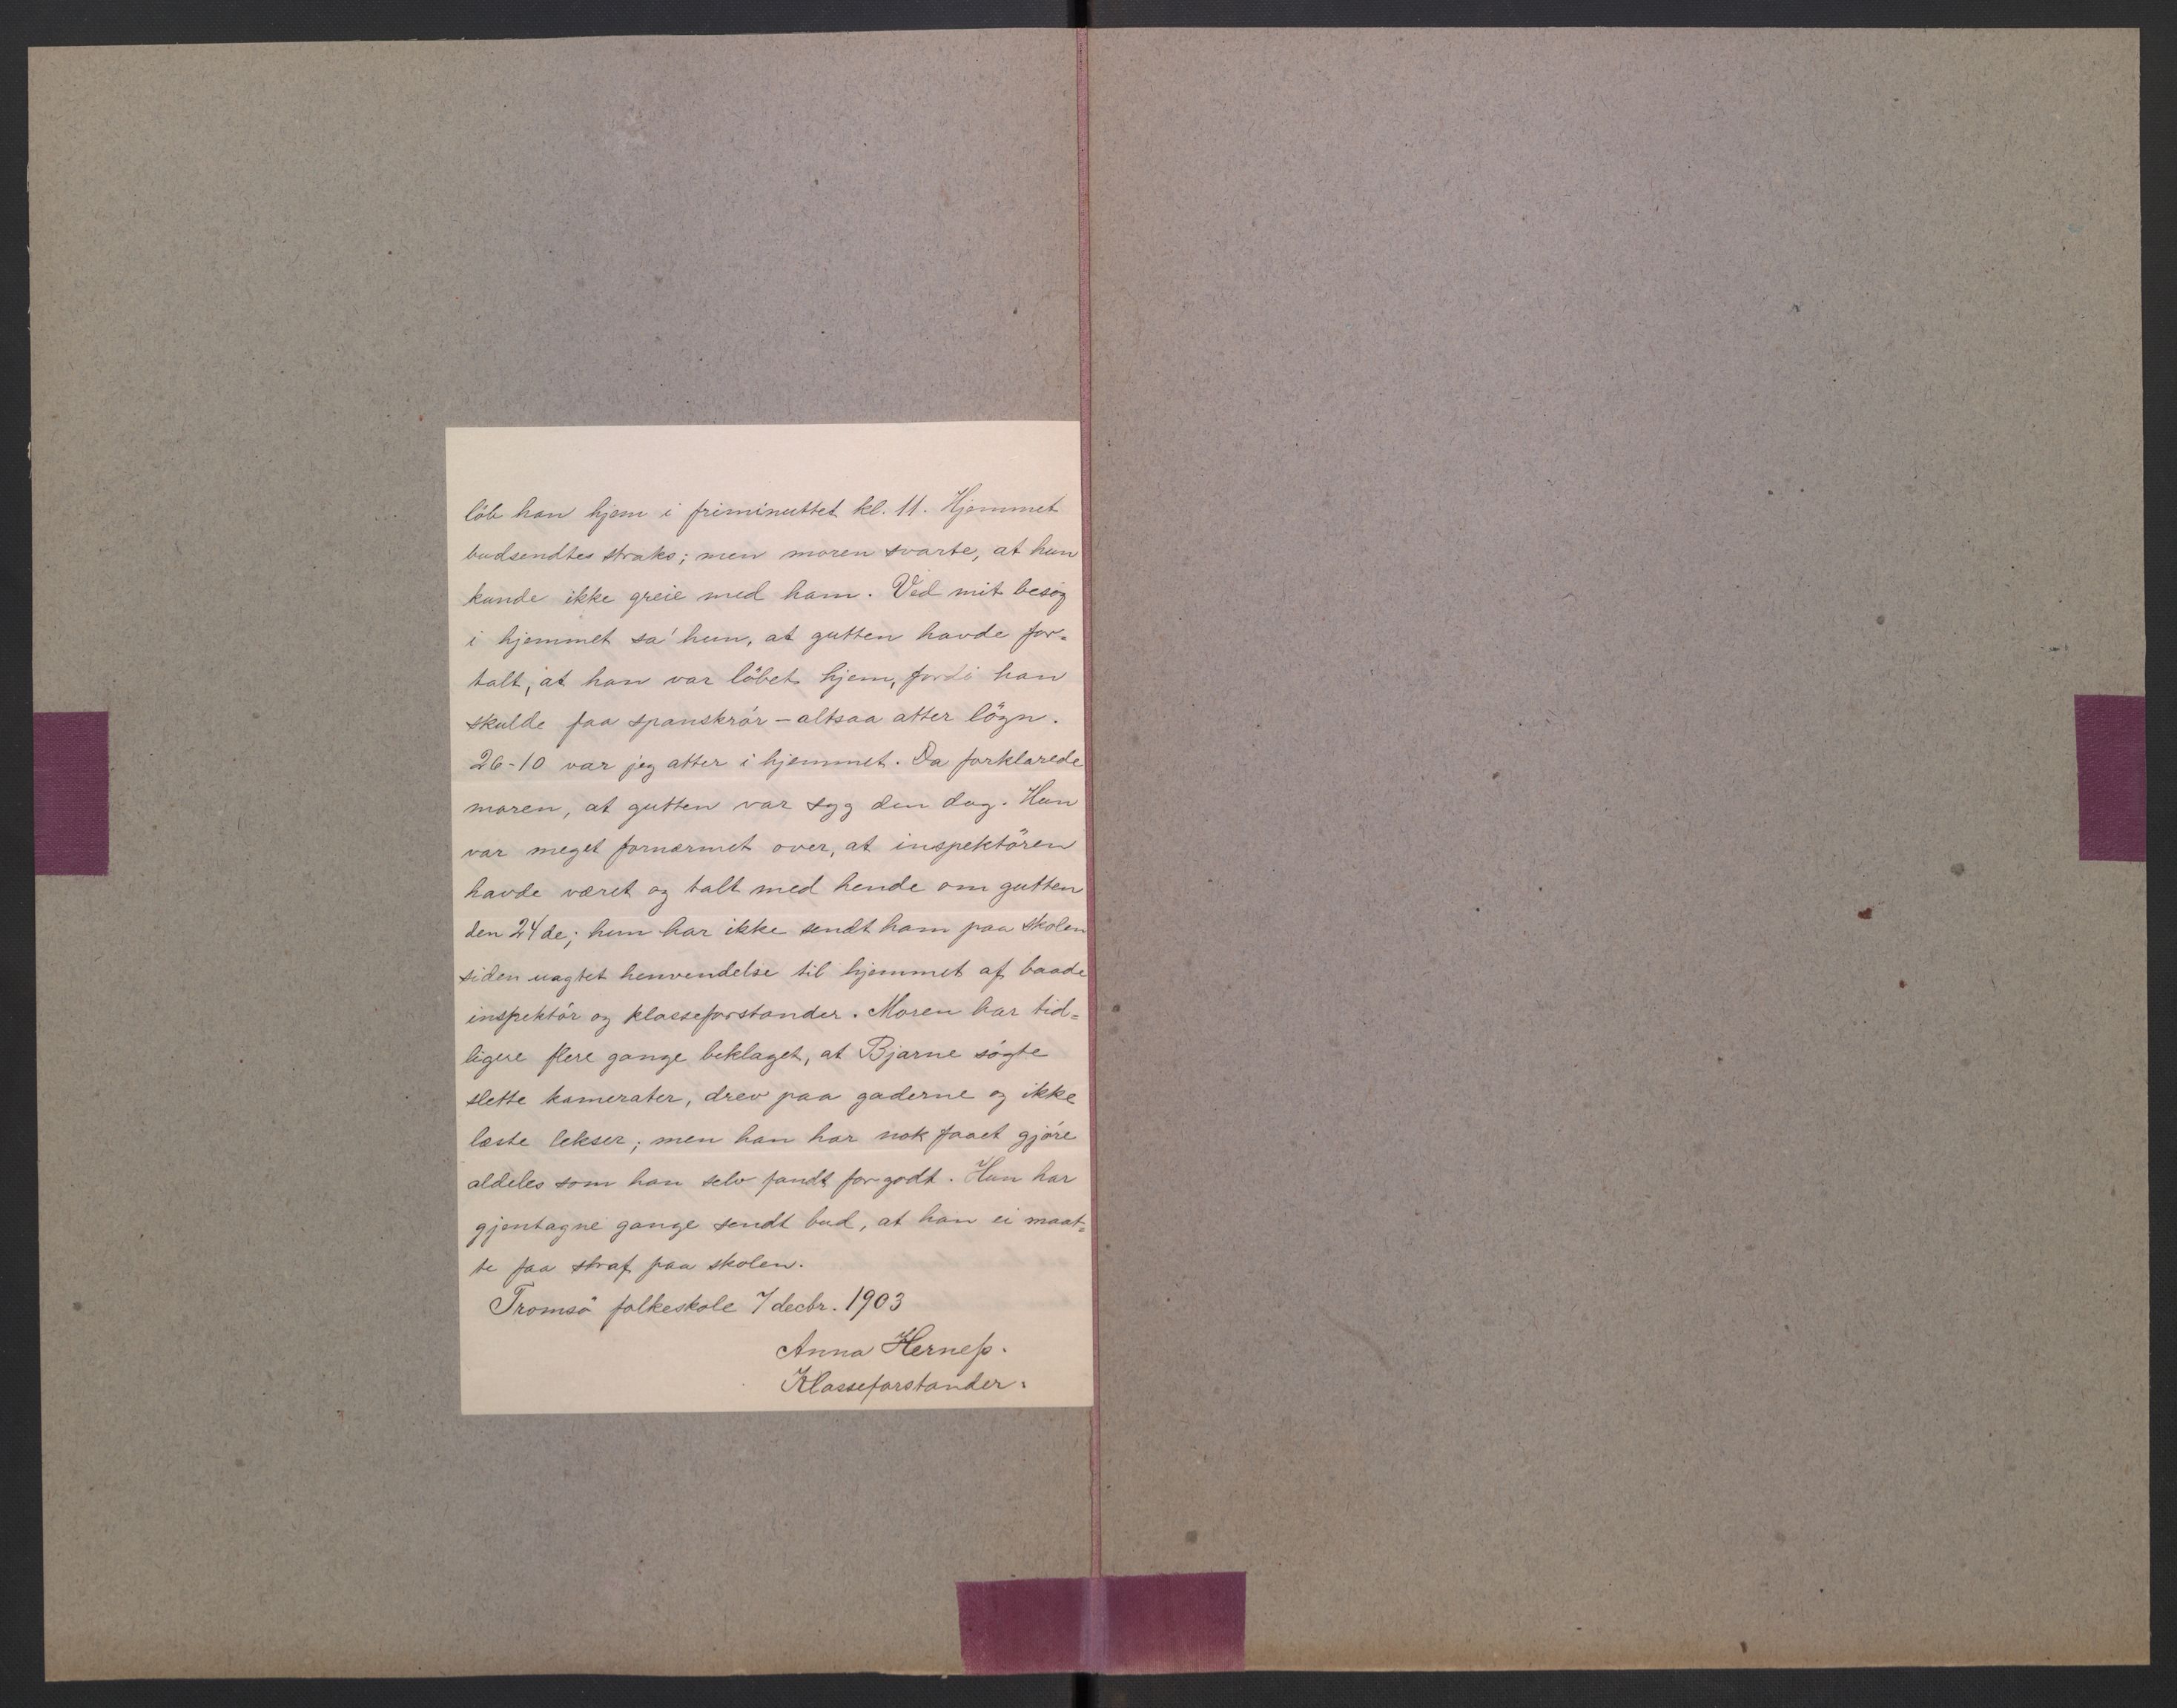 löb han hjem i friminuttet kl. 11. Hjemmet
budsendtes straks; men moren svarte, at hun
kunde ikke greie med ham. Ved mit besög
i hjemmet sa' hun, at gutten havde for=
talt, at han var löbet hjem, fordi han
skulde faa spanskrör – altsaa atter lögn.
26-10 var jeg atter i hjemmet. Da forklarede
moren, at gutten var syg den dag. Hun
var meget fornærmet over, at inspektören
havde været og talt med hende om gutten
den 24de; hun har ikke sendt ham paa skolen
siden uagtet henvendelse til hjemmet af baade
inspektör og klasseforstander. Moren har tid=
ligere flere gange beklaget, at Bjarne sögte
slette kamerater, drev paa gaderne og ikke
læste lekser; men han har nok faaet gjöre
aldeles som han selv fandt forgodt. Hun har
gjentagne gange sendt bud, at han ei maat=
te faa straf paa skolen.
Tromsö folkeskole 7 decbr. 1903
Anna Herneſs.
Klasseforstander.